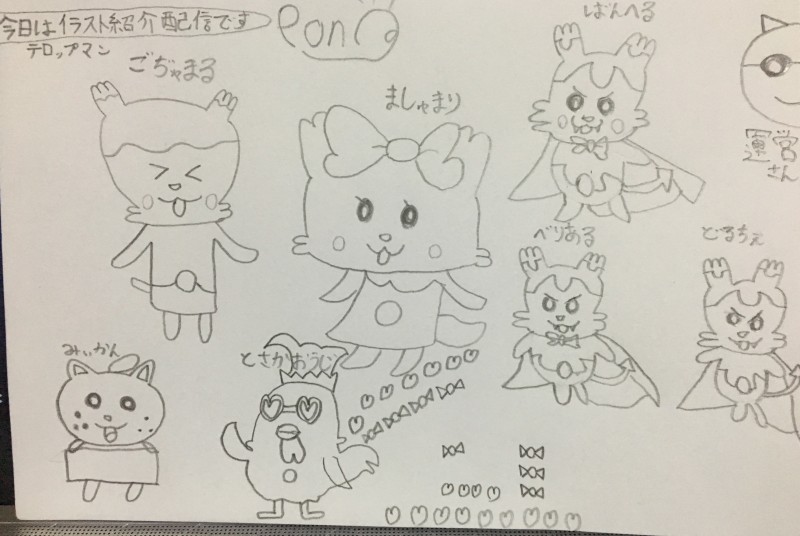 今日はイラスト紹介配信です
テロップマン
PonQ
ごぢゃまる
ましゅまり
ばんへる
運営
さん
べりある
どるちぇ
みぃかん
とさかおうじ